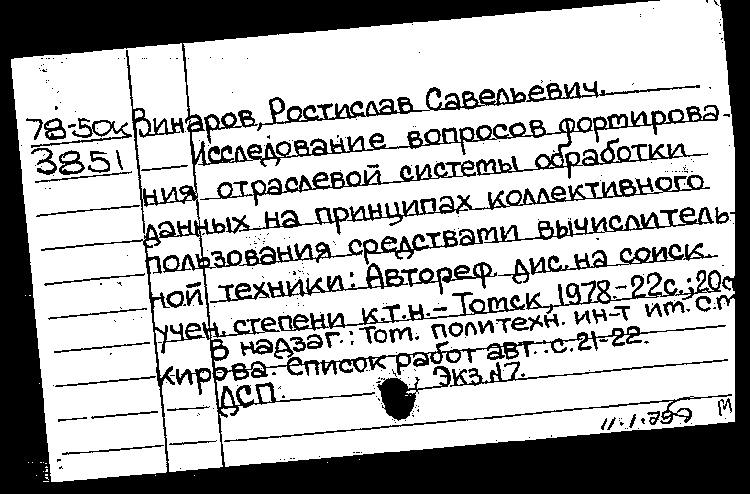 78-50к Винаров, Ростислав Савельевич.
3851 Исследование вопросов формирова-
ния отраслевой системы обработки
данных на принципах коллективного
пользования средствами вычислитель-
ной техники: Автореф. дис. на соиск.
учен. степени к.т.н. - Томск, 1978.-22с.;20с
В надзаг.: Том. политехн. ин-т им. С.М
Кирова. Список работ авт.: с.21-22.
ДСП. Экз.№7.
М